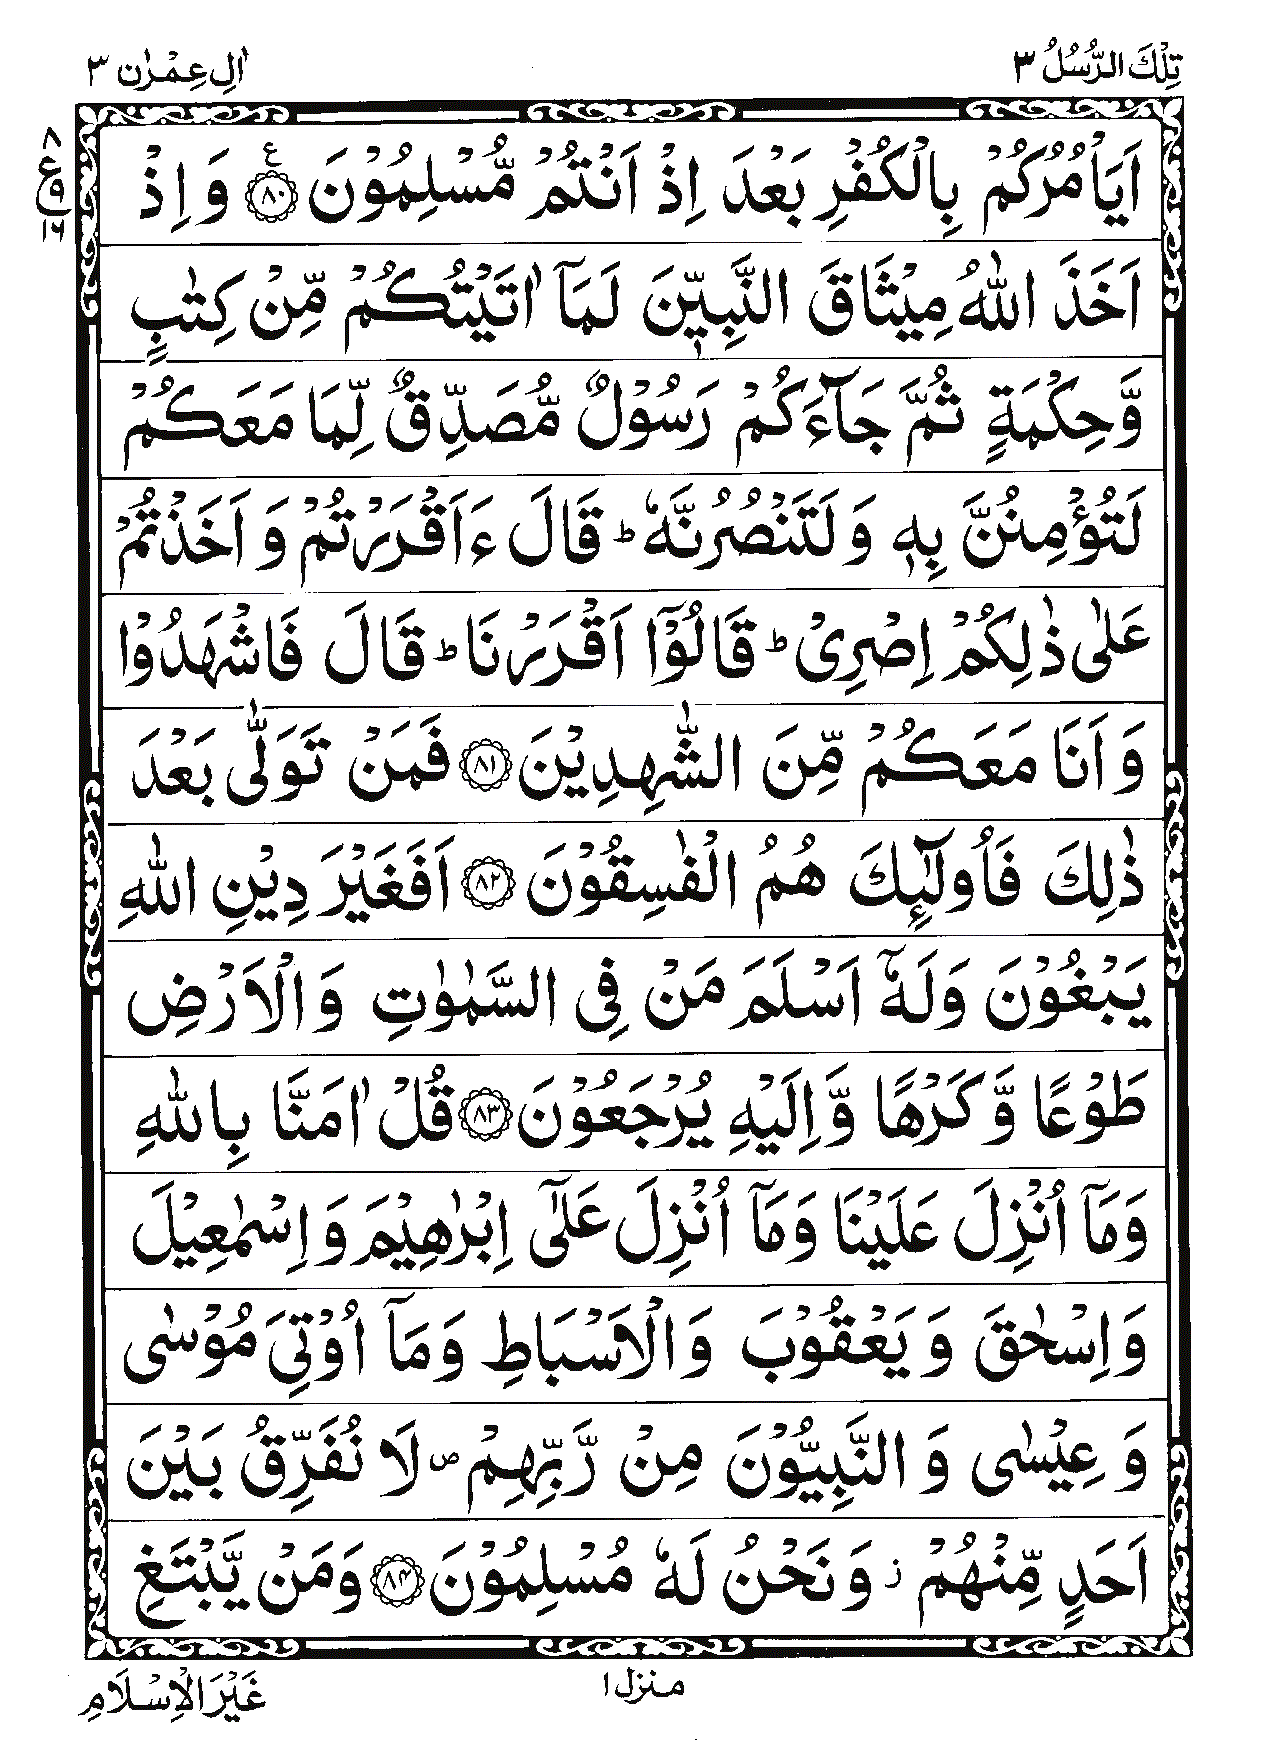 تِلْكَ الرُّسُلُ ٣
اٰلِ عِمْرٰن ٣
٨
ع
٩
١٦
اَيَاْمُرُكُمْ بِالْكُفْرِ بَعْدَ اِذْ اَنْتُمْ مُّسْلِمُوْنَ ﴿٨٠﴾ ع وَ اِذْ
اَخَذَ اللّٰهُ مِيْثَاقَ النَّبِيّٖنَ لَمَاۤ اٰتَيْتُكُمْ مِّنْ كِتٰبٍ
وَّحِكْمَةٍ ثُمَّ جَآءَكُمْ رَسُوْلٌ مُّصَدِّقٌ لِّمَا مَعَكُمْ
لَتُؤْمِنُنَّ بِهٖ وَ لَتَنْصُرُنَّهٗ ؕ قَالَ ءَاَقْرَرْتُمْ وَ اَخَذْتُمْ
عَلٰى ذٰلِكُمْ اِصْرِىْ ؕ قَالُوْۤا اَقْرَرْنَا ؕ قَالَ فَاشْهَدُوْا
وَ اَنَا مَعَكُمْ مِّنَ الشّٰهِدِيْنَ ﴿٨١﴾ فَمَنْ تَوَلّٰى بَعْدَ
ذٰلِكَ فَاُولٰٓئِكَ هُمُ الْفٰسِقُوْنَ ﴿٨٢﴾ اَفَغَيْرَ دِيْنِ اللّٰهِ
يَبْغُوْنَ وَلَهٗۤ اَسْلَمَ مَنْ فِى السَّمٰوٰتِ وَ الْاَرْضِ
طَوْعًا وَّ كَرْهًا وَّ اِلَيْهِ يُرْجَعُوْنَ ﴿٨٣﴾ قُلْ اٰمَنَّا بِاللّٰهِ
وَمَاۤ اُنْزِلَ عَلَيْنَا وَمَاۤ اُنْزِلَ عَلٰٓى اِبْرٰهِيْمَ وَ اِسْمٰعِيْلَ
وَ اِسْحٰقَ وَ يَعْقُوْبَ وَ الْاَسْبَاطِ وَ مَاۤ اُوْتِىَ مُوْسٰى
وَ عِيْسٰى وَ النَّبِيُّوْنَ مِنْ رَّبِّهِمْ ۪ لَا نُفَرِّقُ بَيْنَ
اَحَدٍ مِّنْهُمْ ؗ وَ نَحْنُ لَهٗ مُسْلِمُوْنَ ﴿٨٤﴾ وَمَنْ يَّبْتَغِ
منزل ١
غَيْرَ الْاِسْلَامِ